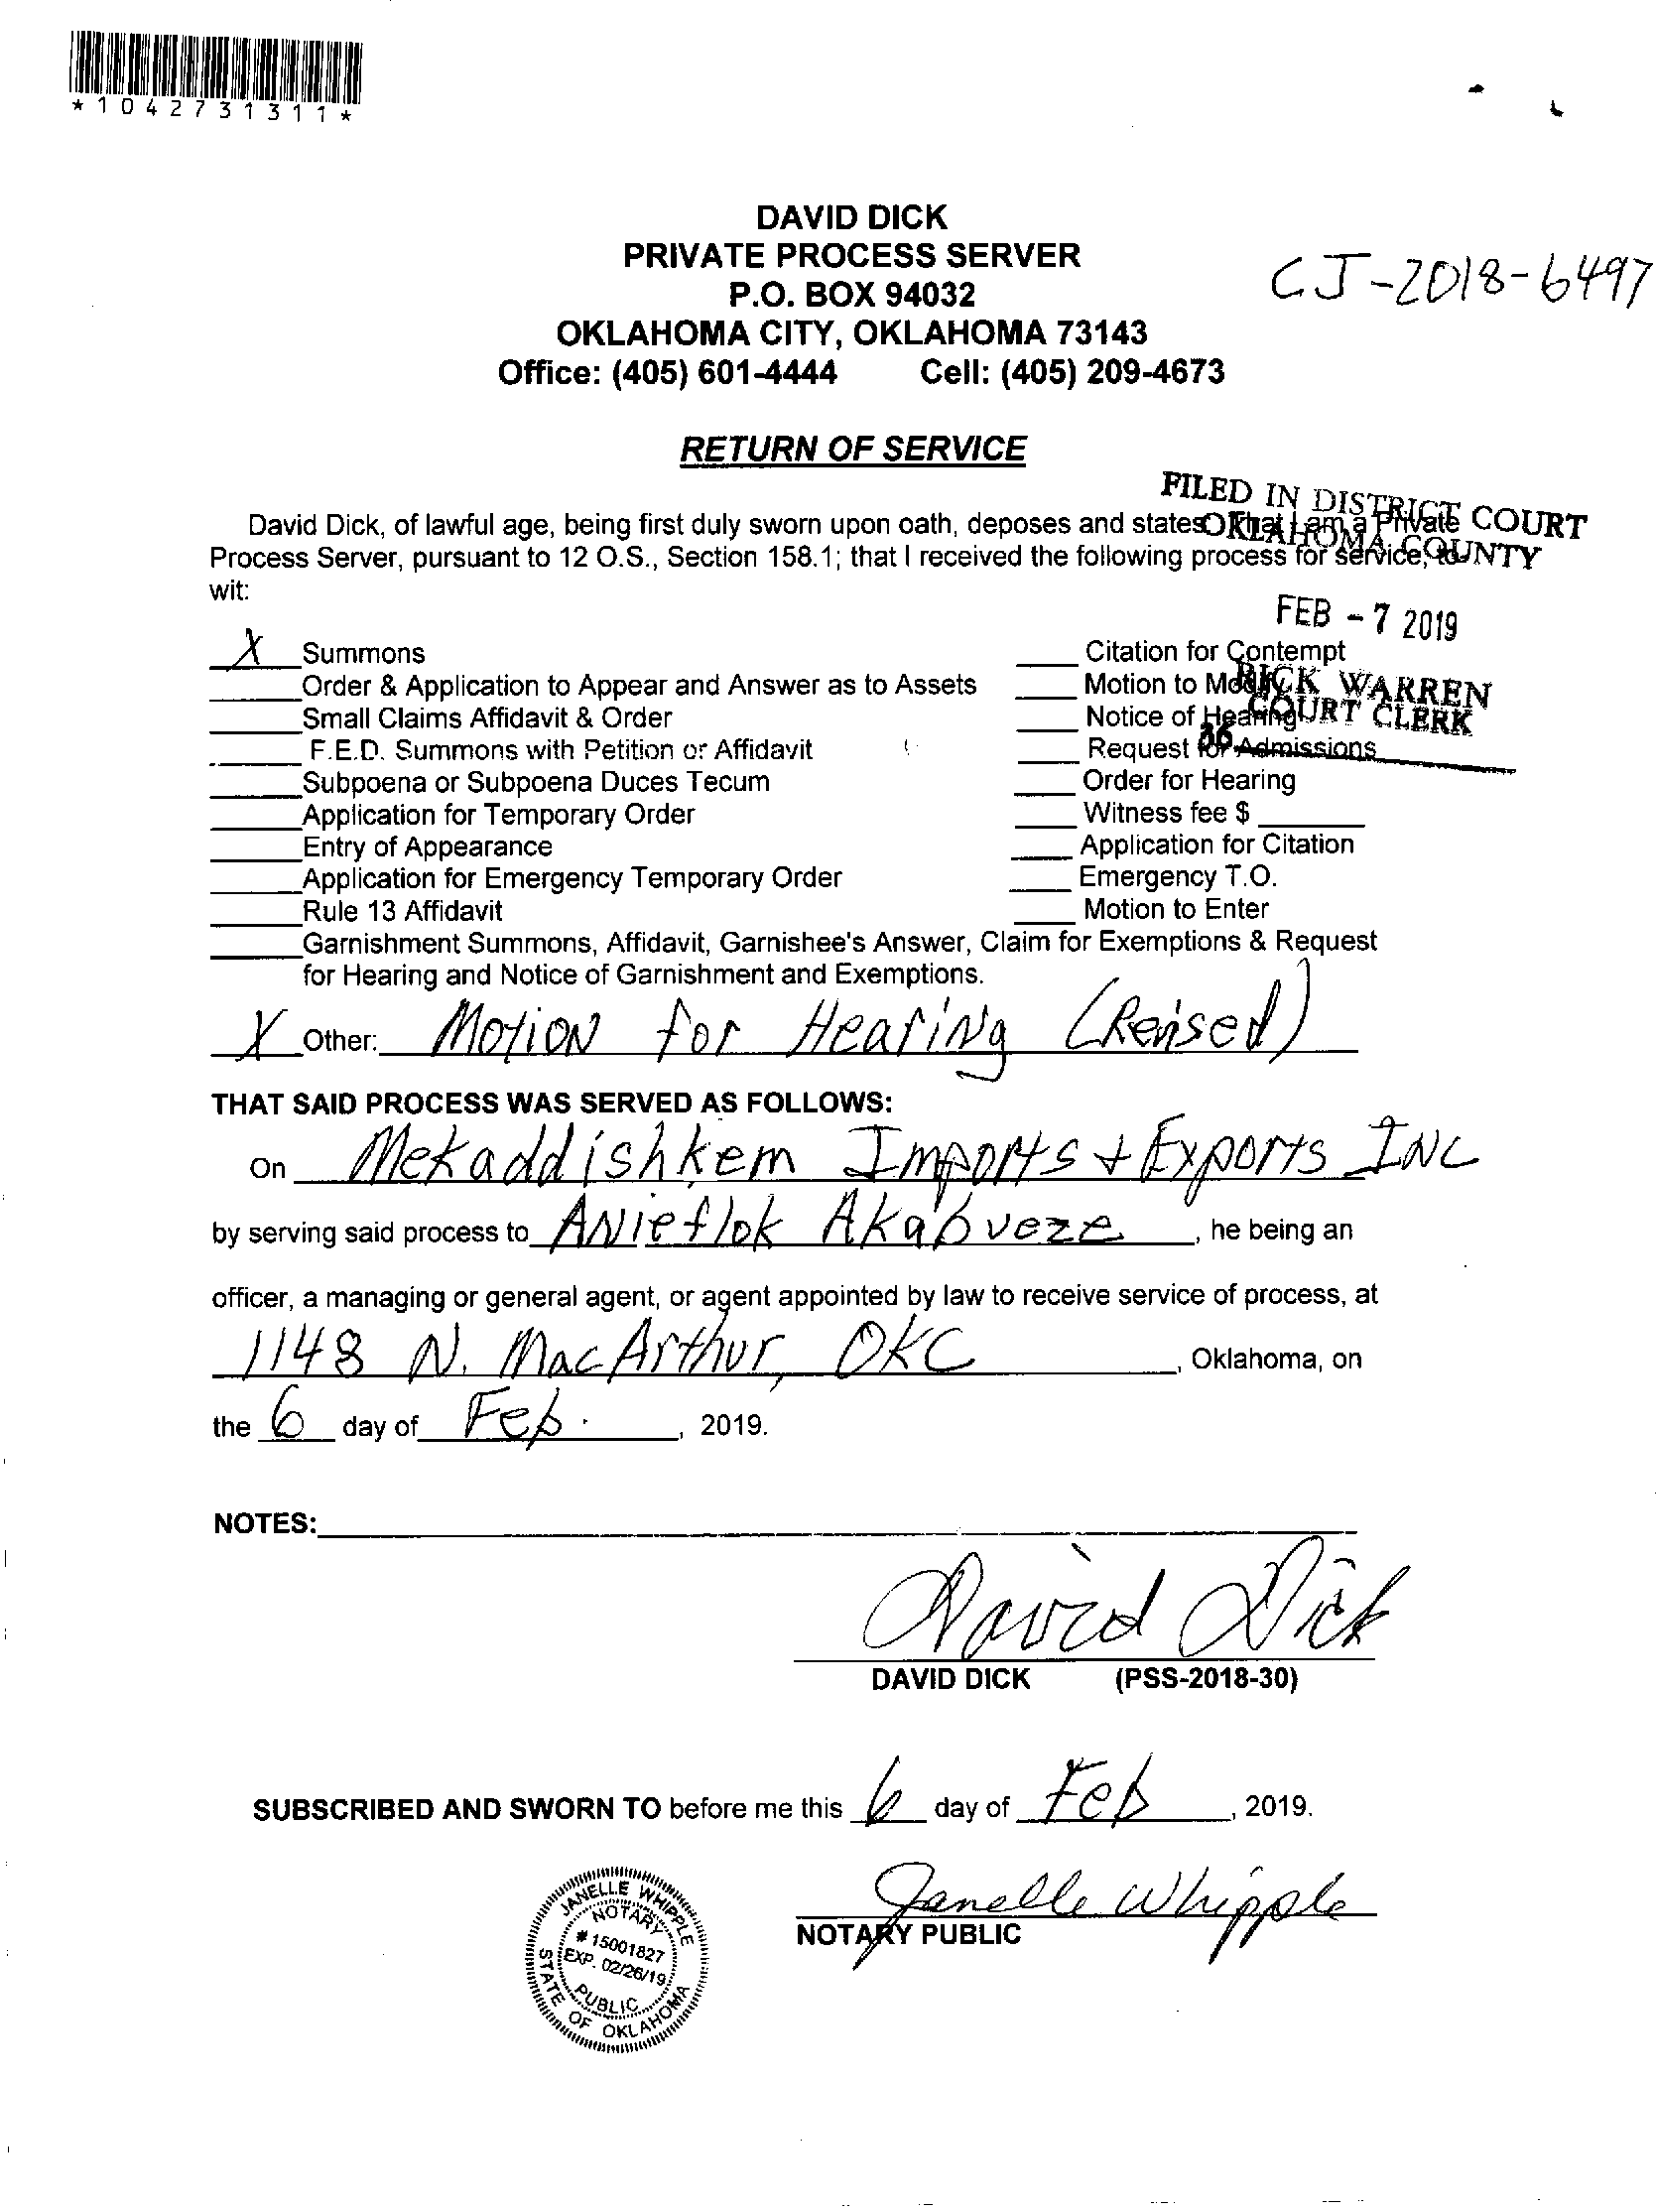 *1042731311*
DAVID DICK
PRIVATE PROCESS SERVER
P.O. BOX 94032
OKLAHOMA CITY, OKLAHOMA 73143
Office: (405) 601-4444 Cell: (405) 209-4673
CJ-2018-6497
RETURN OF SERVICE
FILED IN DISTRICT COURT
OKLAHOMA COUNTY
David Dick, of lawful age, being first duly sworn upon oath, deposes and states: That I am a Private
Process Server, pursuant to 12 O.S., Section 158.1; that I received the following process for service, to
wit:
FEB - 7 2019
RICK WARREN
COURT CLERK
36
X Summons
Order & Application to Appear and Answer as to Assets
Small Claims Affidavit & Order
F.E.D. Summons with Petition or Affidavit
Subpoena or Subpoena Duces Tecum
Application for Temporary Order
Entry of Appearance
Application for Emergency Temporary Order
Rule 13 Affidavit
Citation for Contempt
Motion to Modify
Notice of Hearing
Request for Admissions
Order for Hearing
Witness fee $
Application for Citation
Emergency T.O.
Motion to Enter
Garnishment Summons, Affidavit, Garnishee's Answer, Claim for Exemptions & Request
for Hearing and Notice of Garnishment and Exemptions.
X Other: Motion for Hearing (Revised)
THAT SAID PROCESS WAS SERVED AS FOLLOWS:
On Mekaddishkem Imports + Exports INC
by serving said process to Anieflok Akabveze, he being an
officer, a managing or general agent, or agent appointed by law to receive service of process, at
1148 N. MacArthur, OKC, Oklahoma, on
the 6 day of Feb., 2019.
NOTES:
David Dick
DAVID DICK (PSS-2018-30)
SUBSCRIBED AND SWORN TO before me this 6 day of Feb, 2019.
Janelle Whipple
NOTARY PUBLIC
JANELLE WHIPPLE
NOTARY
# 15001827
EXP. 02/26/19
PUBLIC
STATE OF OKLAHOMA